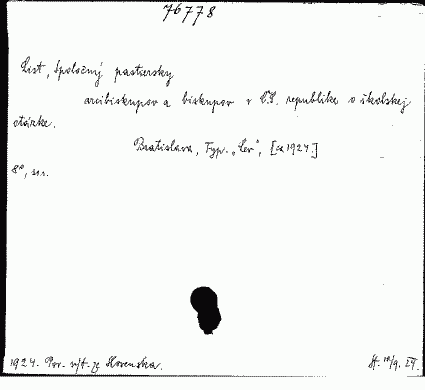 76778
List, Spoločný pastiersky
arcibiskupov a biskupov v Č.S. republike o školskej
otázke.
Bratislava, Typ. „Lev", [ca 1924.]
8°, s.r.
1924. Pov. výt. zo Slovenska.
/9. 27.